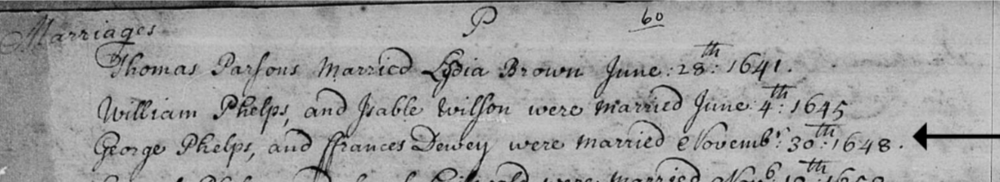 Marriages P 60
Thomas Parsons Married Lydia Brown June: 28th: 1641.
William Phelps, and Isable Wilson were Married June 4th: 1645
George Phelps, and ffrances Dewey were married Novembr: 30th: 1648.
were married Novb 12th: 1650